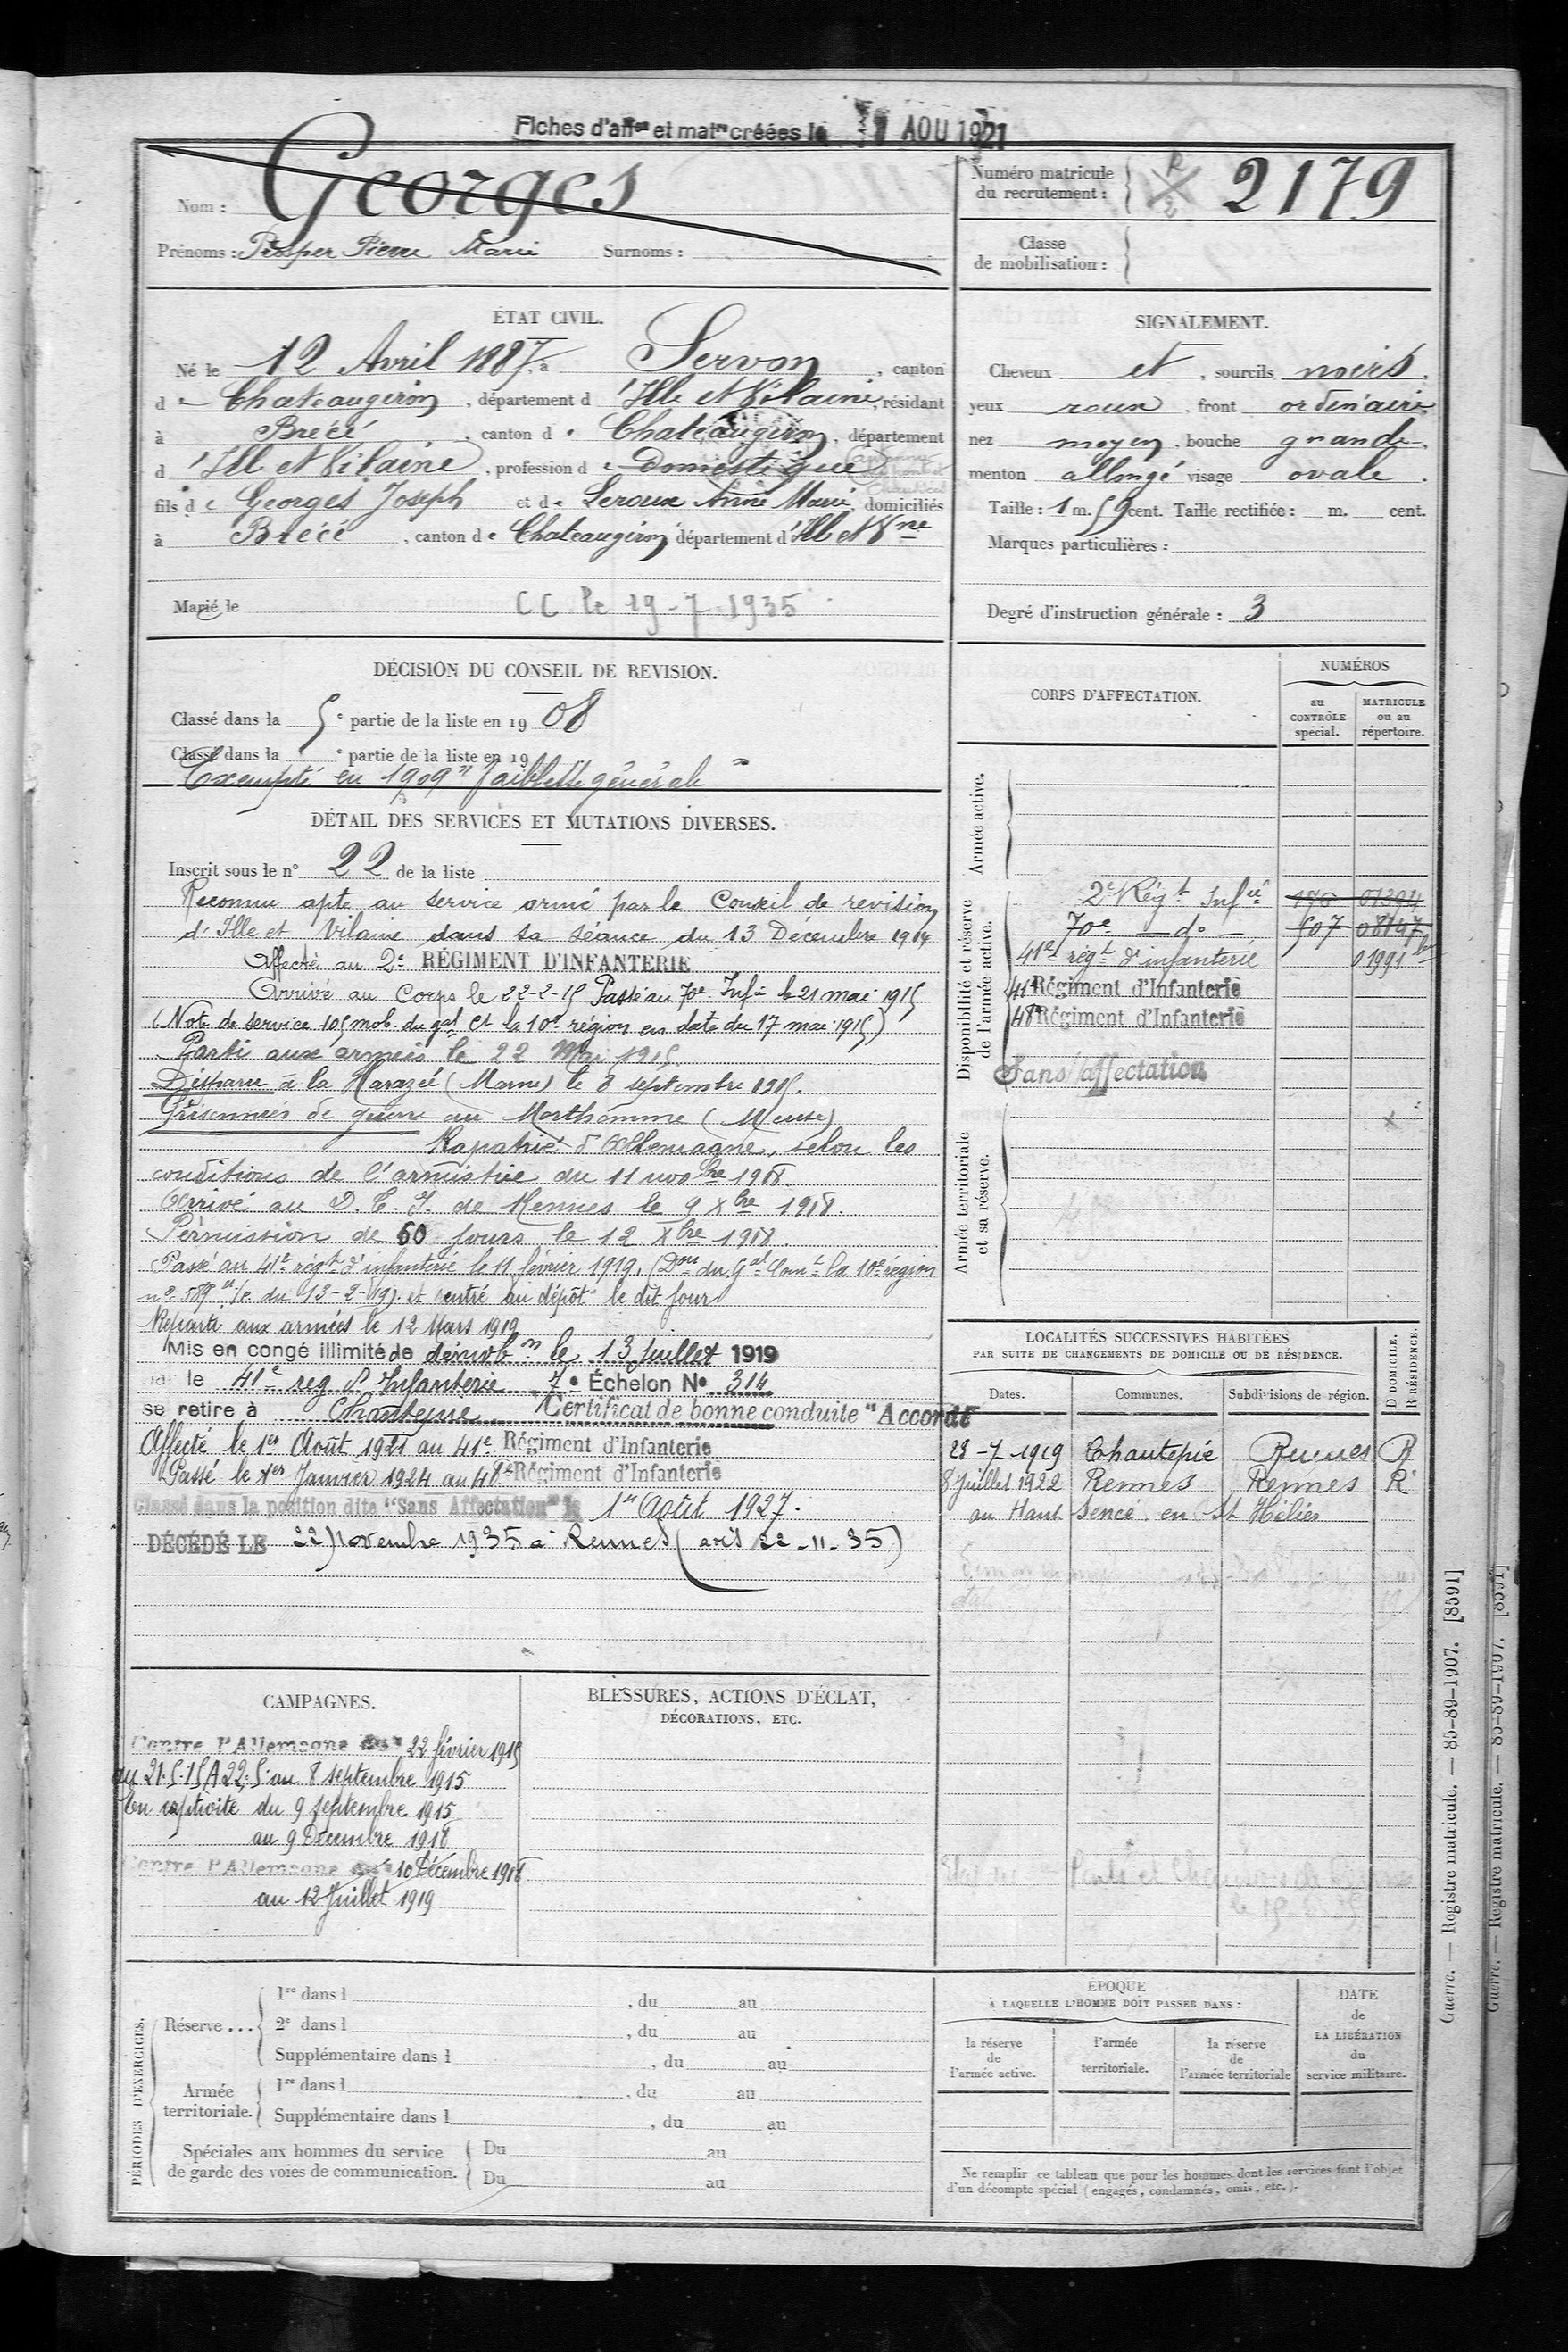 Fiches d'affon et matre créées le 1 AOU 1921
Nom : Georges
Prénoms : Prosper Pierre Marie Surnoms :
Numéro matricule du recrutement : 2179
Classe de mobilisation :
ÉTAT CIVIL.
Né le 12 Avril 1887, à Servon, canton
de Chateaugiron, département d'Ille et Vilaine, résidant
à Brécé, canton de Chateaugiron, département
d'Ille et Vilaine, profession de domestique
fils de Georges Joseph et de Leroux Anne Marie, domiciliés
à Brécé, canton de Chateaugiron département d'Ille et Vne
Marié le CC le 19-7-1935
SIGNALEMENT.
Cheveux et, sourcils noirs.
yeux roux, front ordinaire
nez moyen, bouche grande,
menton allongé visage ovale.
Taille : 1 m. 59 cent. Taille rectifiée : m. cent.
Marques particulières :
Degré d'instruction générale : 3
DÉCISION DU CONSEIL DE REVISION.
Classé dans la 5e partie de la liste en 1908
Classé dans la e partie de la liste en 19
Exempté en 1909 "faiblesse générale"
DÉTAIL DES SERVICES ET MUTATIONS DIVERSES.
Inscrit sous le n° 22 de la liste
Reconnu apte au service armé par le Conseil de revision
d'Ille et Vilaine dans sa séance du 13 Décembre 1914
Affecté au 2e RÉGIMENT D'INFANTERIE
Arrivé au Corps le 22-2-15 Passé au 70e Infie le 21 mai 1915
(Note de service 105 mob. du gal Ct la 10e région en date du 17 mai 1915)
Parti aux armées le 22 Mai 1915
Disparu à la Harazée (Marne) le 8 septembre 1915.
Prisonnier de guerre au Morthomme (Meuse)
Rapatrié d'Allemagne, selon les
conditions de l'armistice du 11 novbre 1918.
Arrivé au D. T. I. de Rennes le 9 Xbre 1918.
Permission de 60 jours le 12 Xbre 1918.
Passé au 41e régt d'infanterie le 11 février 1919. (Don du Gal Comt la 10e région
du 13-2-19) et rentré au dépôt le dit jour
Reparti aux armées le 12 Mars 1919
Mis en congé illimité de démobon le 13 Juillet 1919
par le 41e reg d'Infanterie 7e Échelon No 314
se retire à Chantepie Certificat de bonne conduite "Accordé
Affecté le 1er Août 1921 au 41e Régiment d'Infanterie
Passé le 1er Janvier 1924 au 48e Régiment d'Infanterie
Classé dans la position dite "Sans Affectation" le 1er Août 1927.
DÉCÉDÉ LE 22 Novembre 1935 à Rennes (avis 22-11-35)
CORPS D'AFFECTATION.
NUMÉROS
au CONTRÔLE spécial.
MATRICULE ou au répertoire.
Armée active.
Disponibilité et réserve de l'armée active.
2e Régt Infie 01394
70e - do - 507 08147
41e régt d'infanterie 01991
41e Régiment d'Infanterie
48e Régiment d'Infanterie
Sans affectation
Armée territoriale et sa réserve.
LOCALITÉS SUCCESSIVES HABITÉES
PAR SUITE DE CHANGEMENTS DE DOMICILE OU DE RÉSIDENCE.
D DOMICILE. R RÉSIDENCE.
Dates. Communes. Subdivisions de région.
23-7-1919 Chantepie Rennes R
8 Juillet 1922 Rennes Rennes R
au Haut Sencé en St Hélier
CAMPAGNES.
Contre l'Allemagne du 22 février 1915
au 21-5-15 A 22-5 au 8 septembre 1915
En captivité du 9 septembre 1915
au 9 Décembre 1918
Contre l'Allemagne du 10 Décembre 1918
au 12 Juillet 1919
BLESSURES, ACTIONS D'ÉCLAT,
DÉCORATIONS, ETC.
PÉRIODES D'EXERCICES.
Réserve ...
1re dans l , du au
2e dans l , du au
Supplémentaire dans l , du au
Armée territoriale.
1re dans l , du au
Supplémentaire dans l , du au
Spéciales aux hommes du service
de garde des voies de communication.
Du au
Du au
ÉPOQUE
À LAQUELLE L'HOMME DOIT PASSER DANS :
la réserve de l'armée active.
l'armée territoriale.
la réserve de l'armée territoriale
DATE de LA LIBÉRATION du service militaire.
Ne remplir ce tableau que pour les hommes dont les services font l'objet
d'un décompte spécial (engagés, condamnés, omis, etc.).
Guerre. — Registre matricule. — 85-89-1907. [8591]
Guerre. — Registre matricule. — 85-89-1907. [8591]